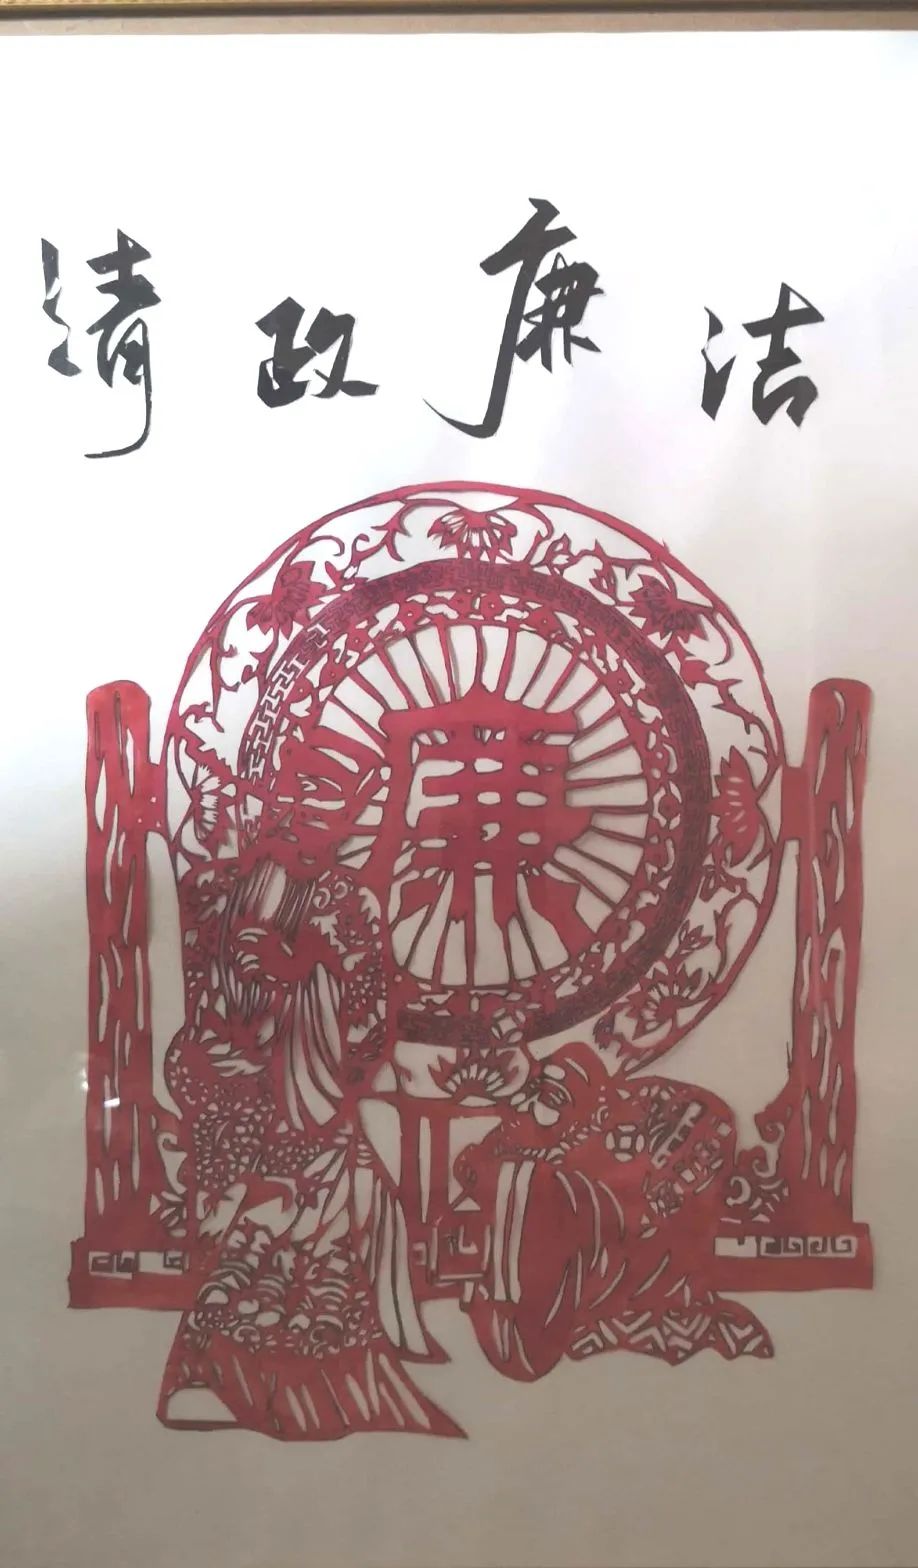 清政廉洁
廉